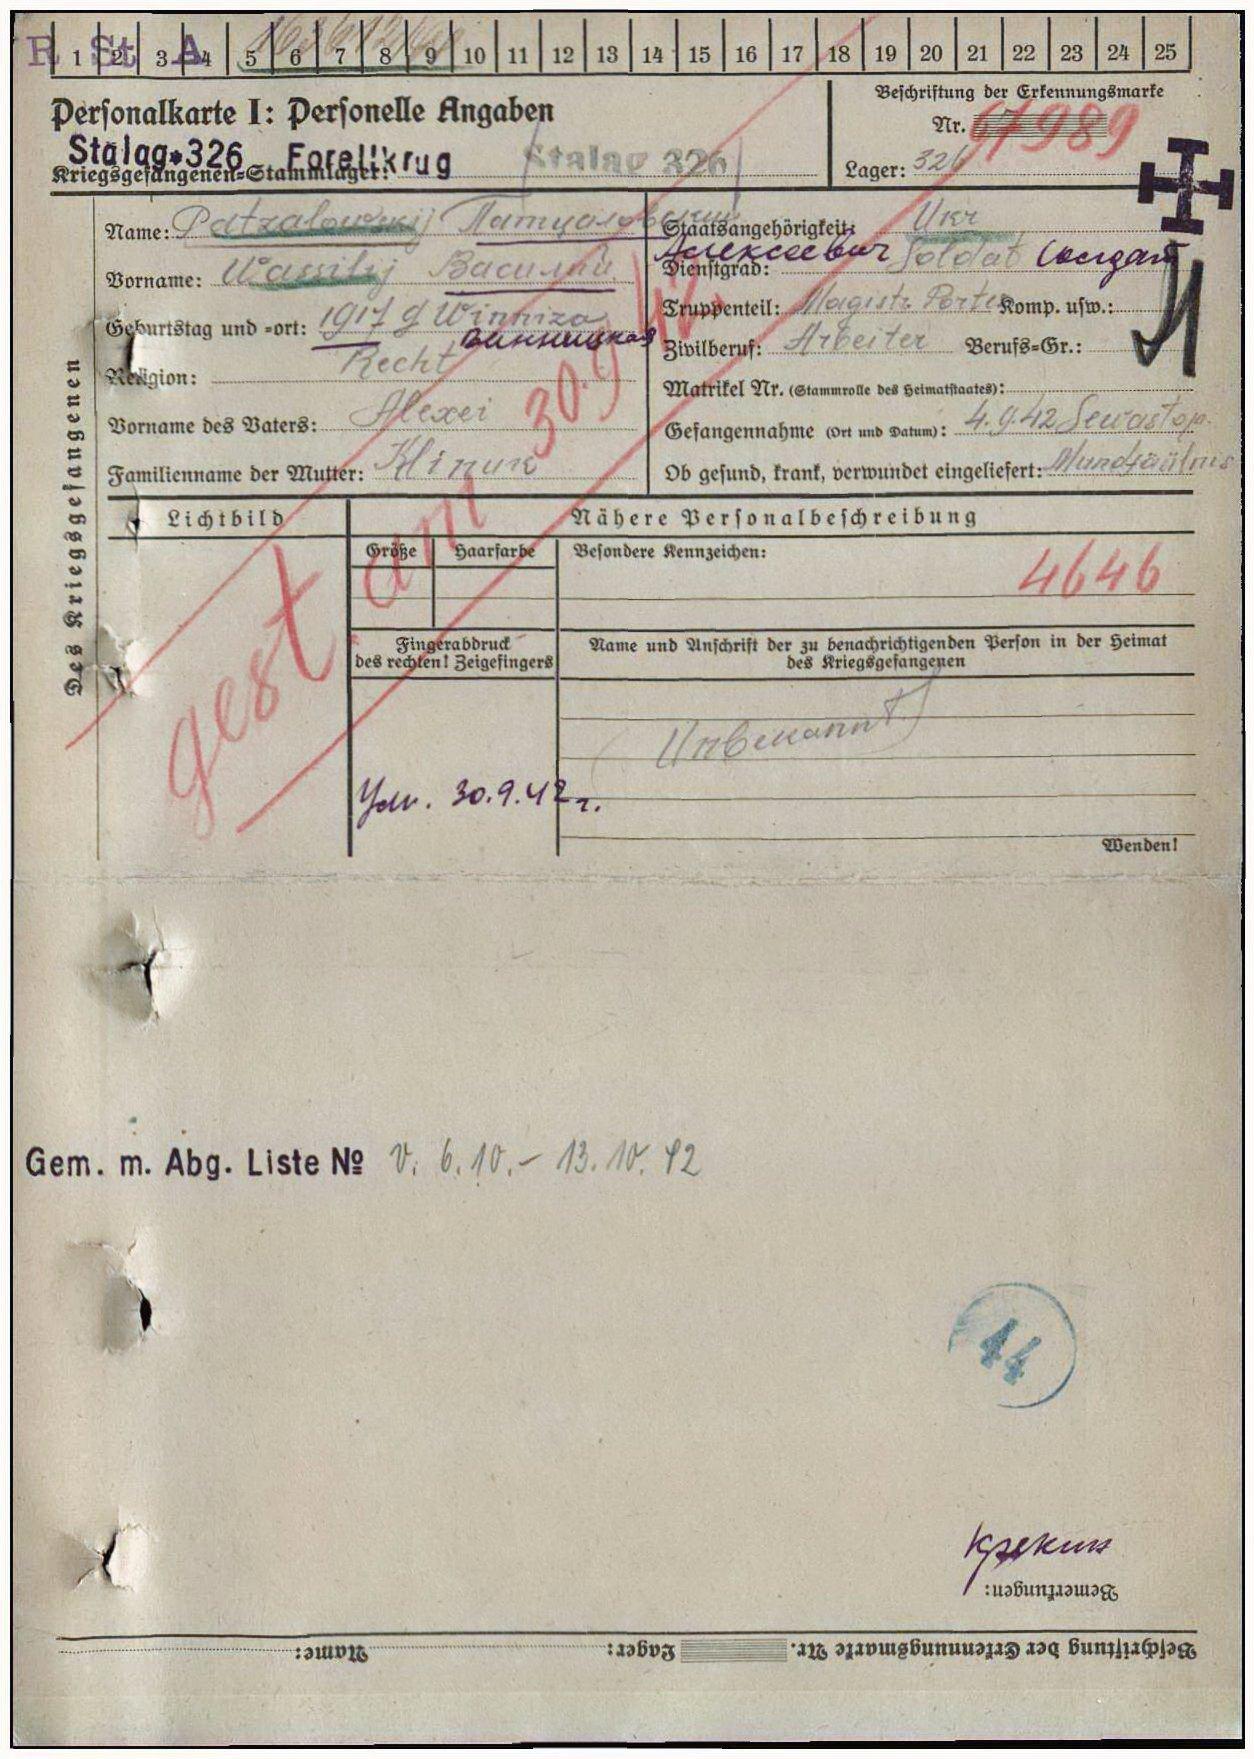 R St A
1 2 3 4 5 6 7 8 9 10 11 12 13 14 15 16 17 18 19 20 21 22 23 24 25
Personalkarte I: Personelle Angaben
Beschriftung der Erkennungsmarke
Nr. 67989
Stalag 326 Forellkrug
Stalag 326
Kriegsgefangenen-Stammlager:
Lager: 326
Des Kriegsgefangenen
Name: Patzalowskij Пацаловский
Vorname: Wassilij Василий Алексеевич
Geburtstag und -ort: 1917 g Winniza
винницкая
Religion: Recht
Vorname des Vaters: Alexei
Familienname der Mutter: Klinuk
Staatsangehörigkeit: Ukr
Dienstgrad: Soldat Солдат
Truppenteil: Komp. usw.:
Zivilberuf: Arbeiter Berufs-Gr.:
Matrikel Nr. (Stammrolle des Heimatstaates):
Gefangennahme (Ort und Datum): 4.9.42 Sewastop.
Ob gesund, krank, verwundet eingeliefert: Mundfäulnis
gest am 30.9.42.
Lichtbild
Nähere Personalbeschreibung
Größe Haarfarbe Besondere Kennzeichen:
4646
Fingerabdruck
des rechten! Zeigefingers
Name und Anschrift der zu benachrichtigenden Person in der Heimat
des Kriegsgefangenen
Unbekannt
Ум. 30.9.42 г.
Wenden!
Gem. m. Abg. Liste № v. 6.10.- 13.10.42
44
Bemerkungen:
Beschriftung der Erkennungsmarke Nr. Lager: Name: